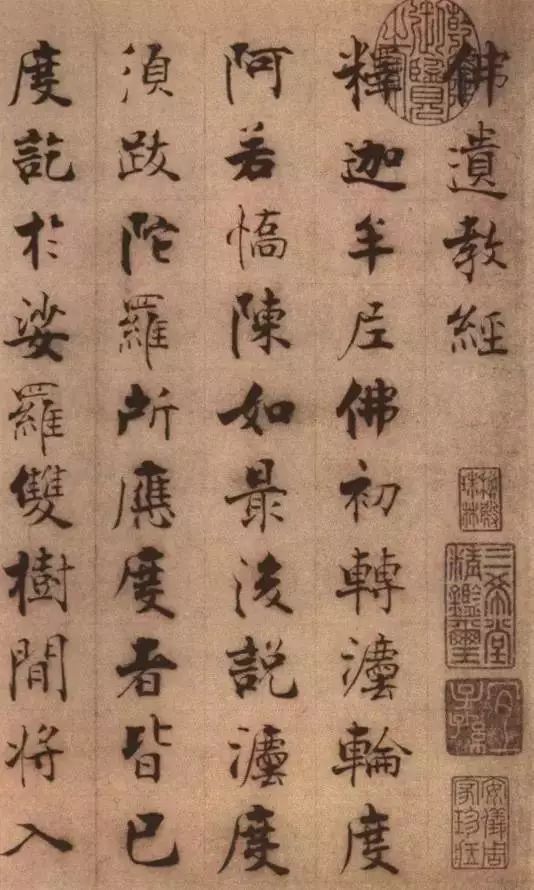 佛遺教經
釋迦牟尼佛初轉灋輪度
阿若憍陳如最後説灋度
須跋陀羅所應度者皆已
度訖於娑羅雙樹間將入
三希堂精鑑璽
宜子孫
安儀周家珍藏